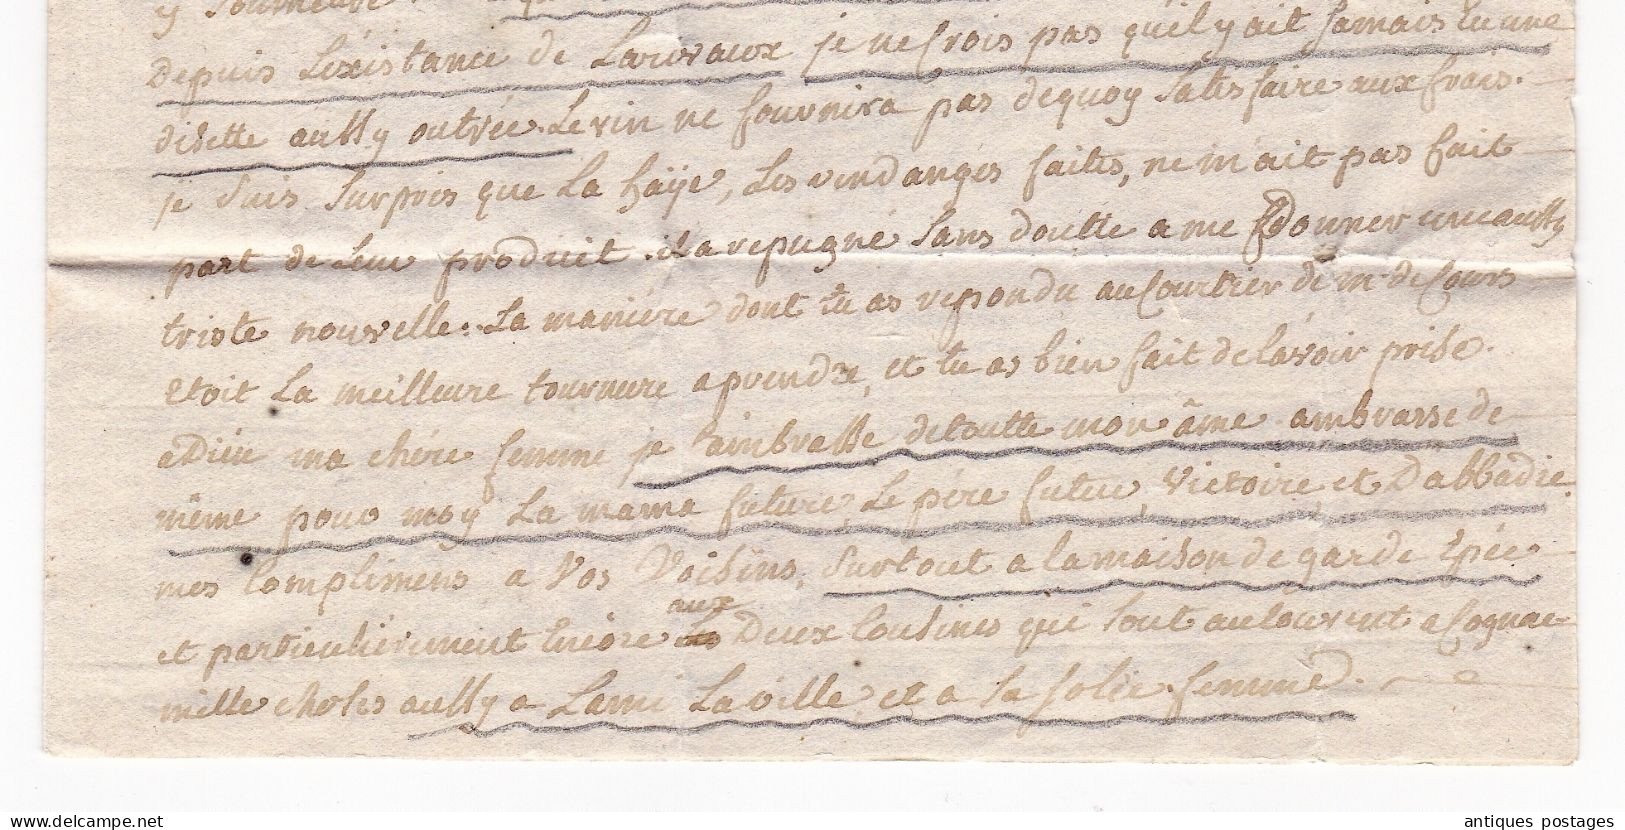 y
Depuis Lexistance de Larivaux je ne crois pas quil y ait jamais eu une
disette aussy outrée. Le vin ne fournira pas dequoy satisfaire aux frais.
je suis surpris que La haije, Les vendanges faites, ne m'ait pas fait
part de Leur produit. il a repugné sans doutte a me donner une aussy
triste nouvelle. La maniere dont tu as repondu au Courtier de mr. de Cours
etoit La meilleure tournure a prendre, et tu as bien fait de lavoir prise.
adieu ma chére femme je t'ambrasse de toutte mon âme. ambrasse de
même pour moy La mama future, Le pére futur, Victoire, et Dabbadie.
mes Complimens a Vos Voisins, surtout a la maison de garde Epée
et particuliérement Encore aux Deux Cousines qui sont au Couvent a Cognac
mille choses aussy a Lami La ville, et a sa jolie femme.
delcampe.net
antiques postages